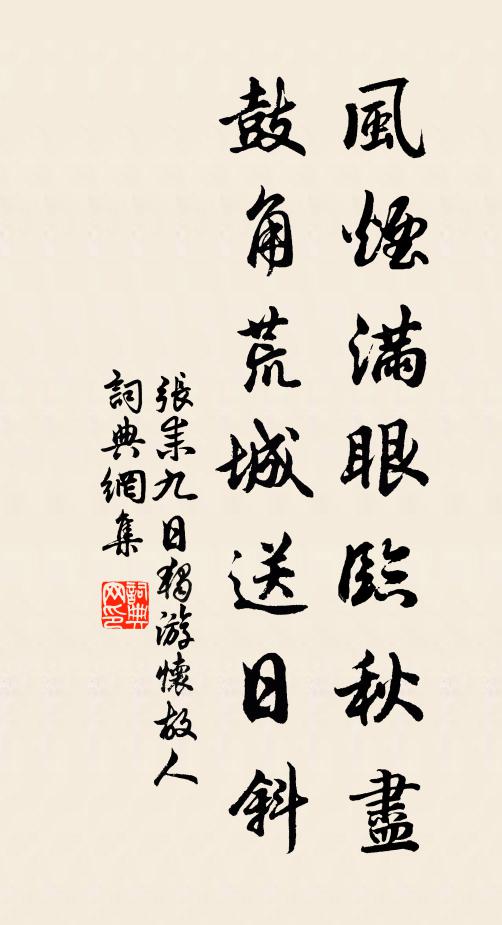 風煙滿眼臨秋盡
鼓角荒城送日斜
張耒九日獨游懷故人
詞典網集
詞典网印